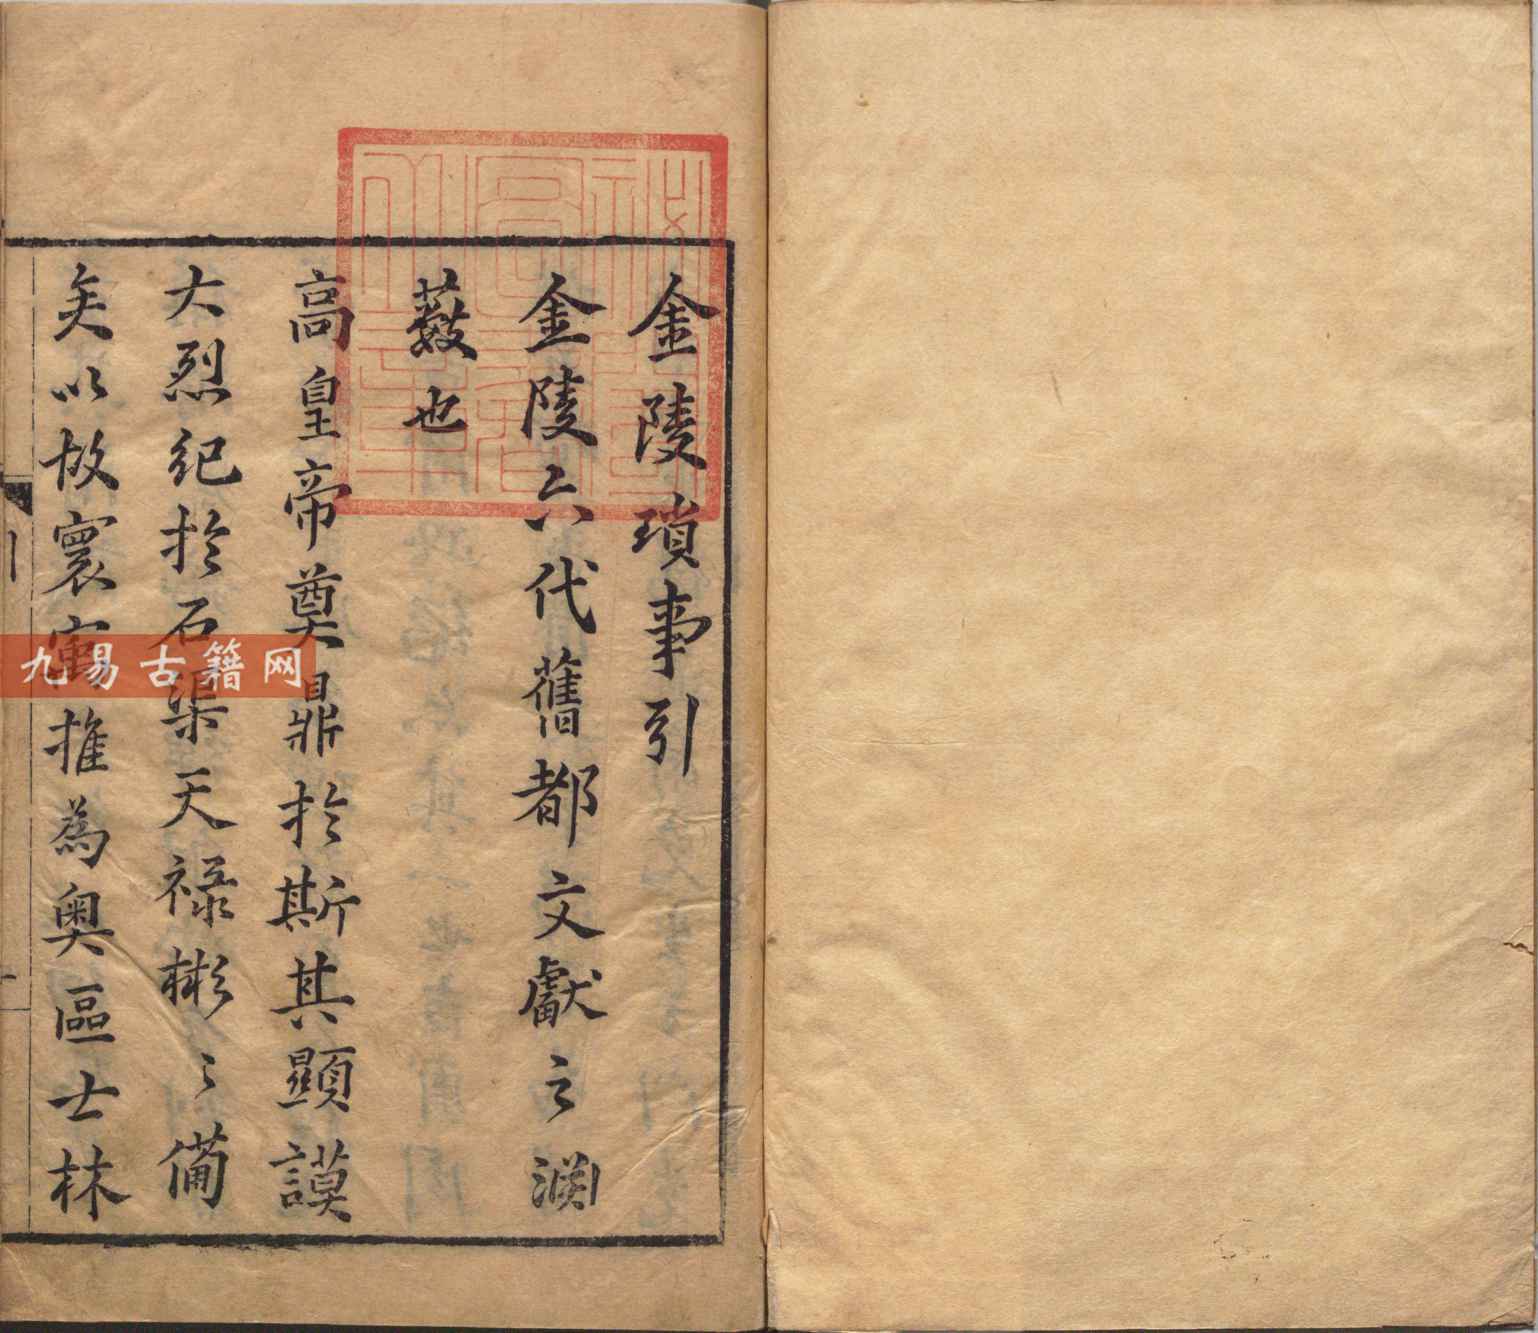 金陵瑣事引
金陵六代舊都文獻之淵
藪也
高皇帝奠鼎於斯其顯謨
大烈紀於石渠天祿彬〻備
矣以故寰寓推為奥區士林
九易古籍网